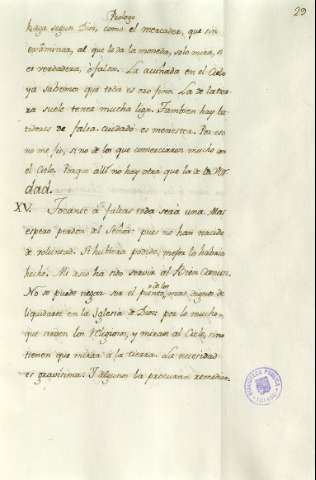 Prologo
29
haga segun Dios, como el mercader, que sin
examinar, al que le da la moneda, solo mira, si
es verdadera, ò falsa. La acuñada en el Cielo
ya sabemos que toda es oro fino. La de la tier-
ra suele tener mucha liga. Tambien hay la-
tidores de falsa. Cuidado es menester. Por eso
no me fio, sino de los que comerciaron mucho en
el Cielo. Porque alli no hay otra que la de la Ver-
dad.
XV. Tocante à faltas toda serà una. Mas
espero perdon del Señor: pues no han nacido
de voluntad. Si hubiera podido, mejor lo habria
hecho. Mi asio ha sido servir al Bien Comun.
No se puede negar ser el punto, de los mas dignos de
liquidarse en la Iglesia de Dios por lo mucho,
que siguen los Religiosos, y miran al Cielo, sino
tienen que mirar à la tierra. La necesidad
es gravisima. Y algunos la procuran remediar
BIBLIOTECA PUBLICA
TOLEDO